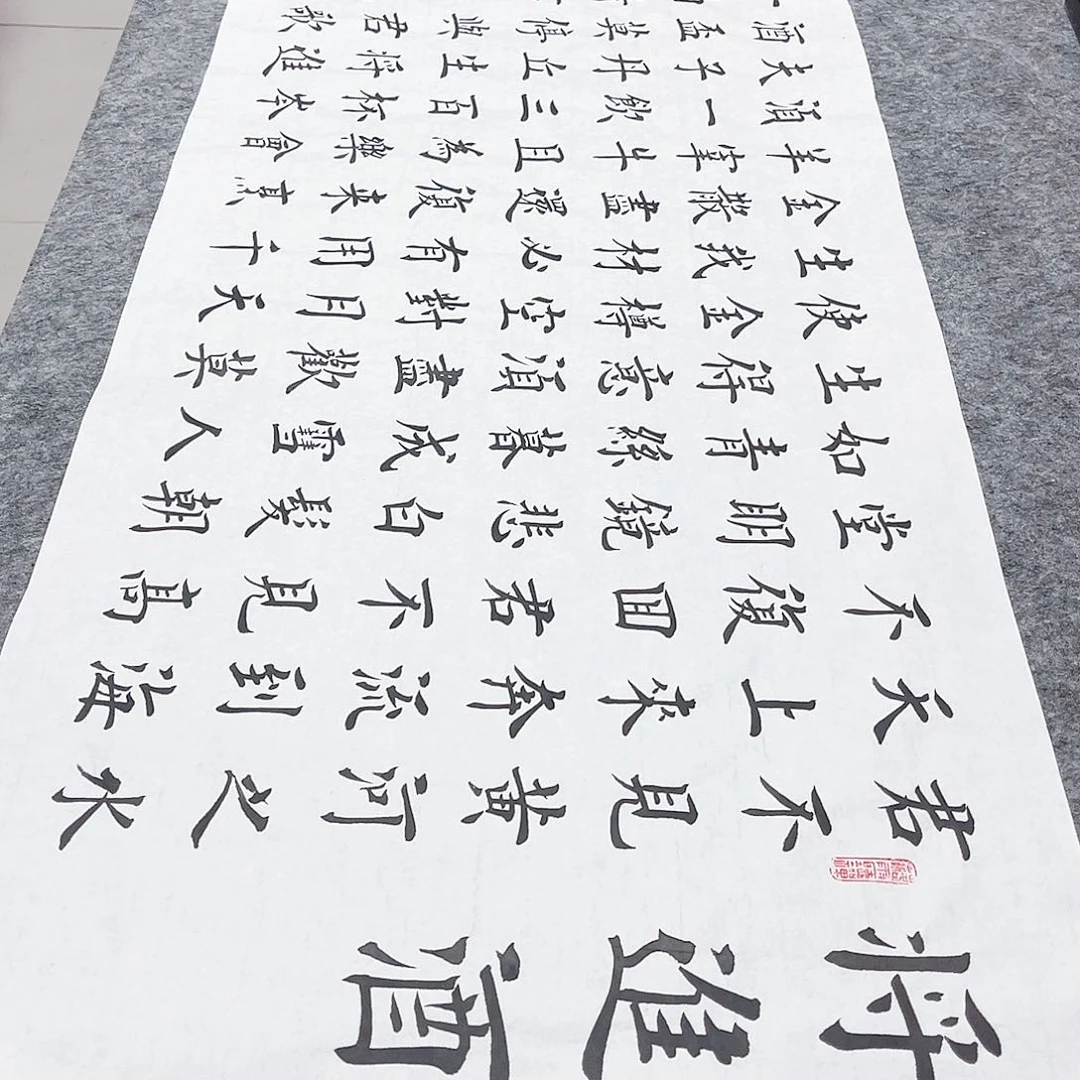 将進酒
君不見黃河之水
天上來奔流到海
不復回君不見高
堂明鏡悲白髮朝
如青絲暮成雪人
生得意須盡歡莫
使金樽空對月天
生我材必有用千
金散盡還復來烹
羊宰牛且為樂會
須一飲三百杯岑
夫子丹丘生将進
酒盃莫停與君歌